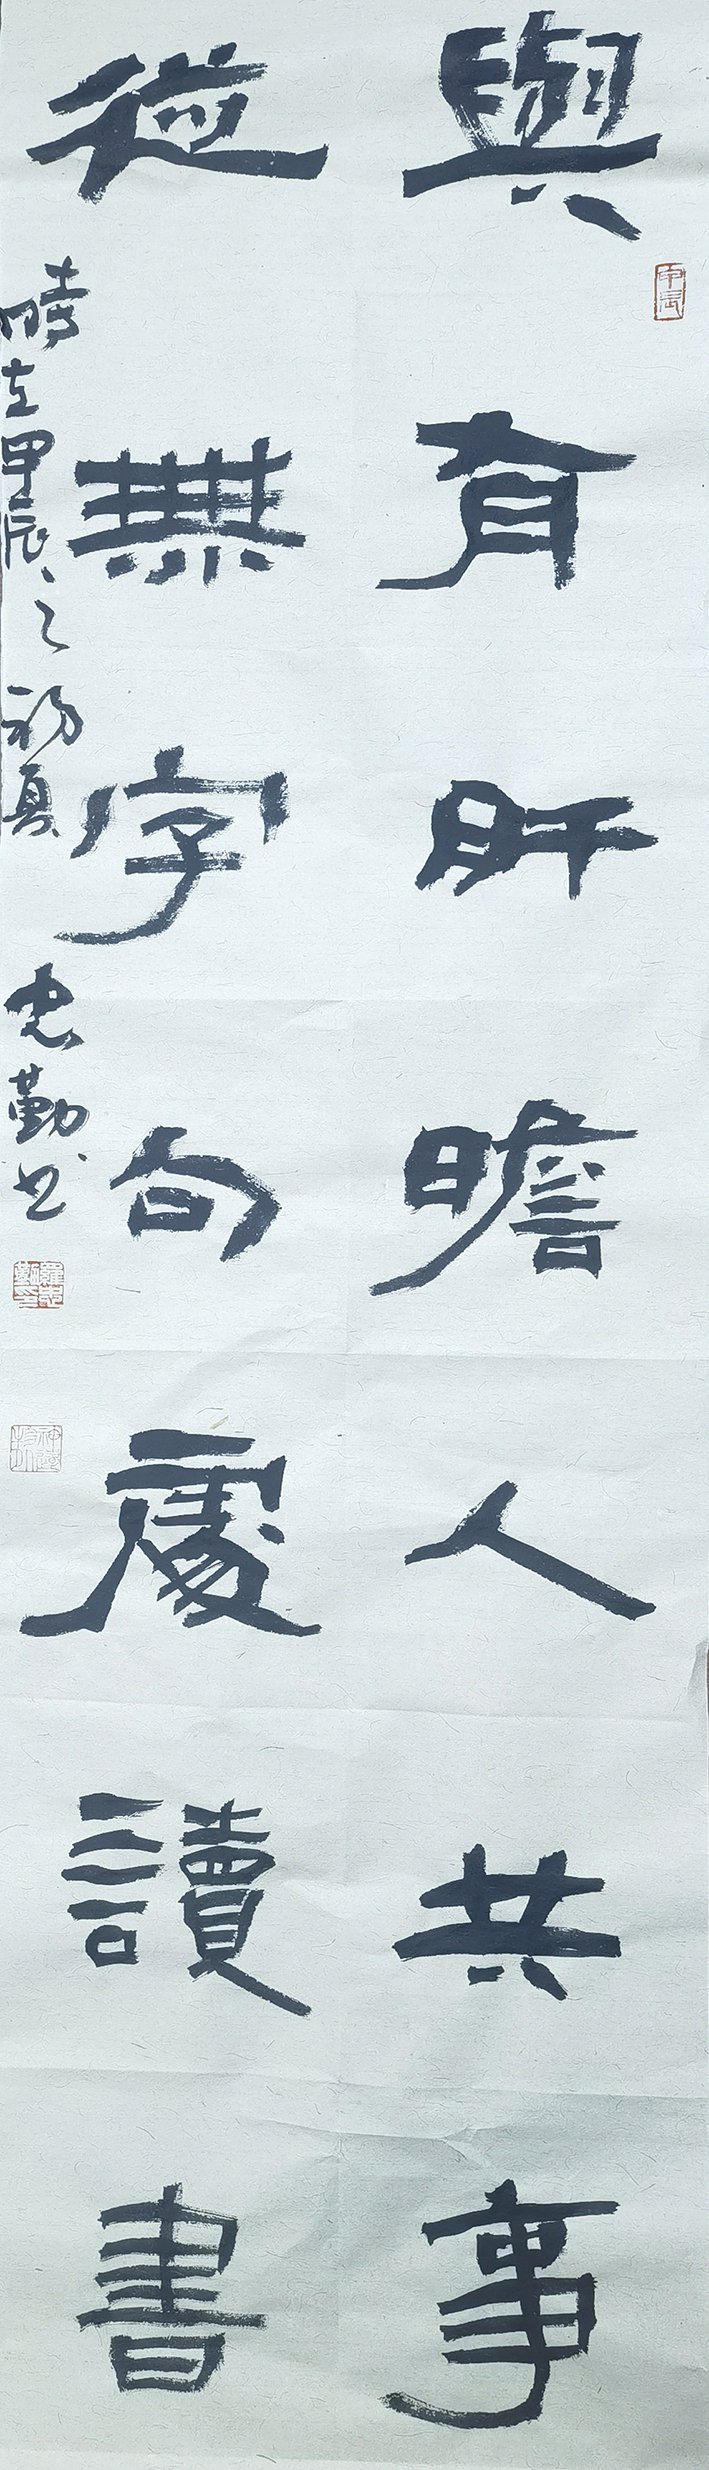 與有肝膽人共事
從無字句處讀書
時在甲辰之初夏 忠勤书
甲辰